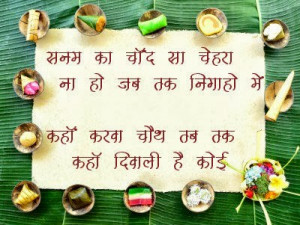 सनम का चाँद सा चेहरा
ना हो जब तक निगाहो में
कहाँ करवा चौथ तब तक
कहाँ दिवाली है कोई